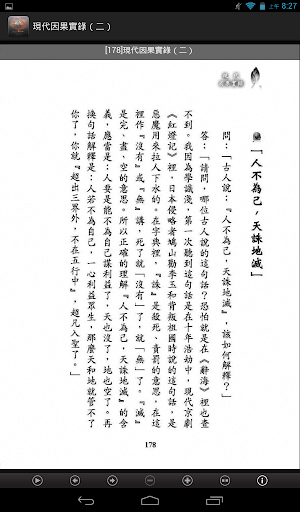 上午 8:27
現代因果實錄（二）
[178]現代因果實錄（二）
「人不為己，天誅地滅」
問：「古人說：『人不為己，天誅地滅』，該如何解釋？」
答：「請問，哪位古人說的這句話？恐怕就是在《辭海》裡也查
不到。我因為學識淺，第一次聽到這句話是在十年浩劫中，現代京劇
《紅燈記》裡，日本侵略者鳩山勸李玉和背叛祖國時說的這句話，是
惡魔用來拉人下水的。在字典裡，『誅』是殺死、責罰的意思。在這
裡作『沒有』或『無』講，死了就『沒有』了，就『無』了。『滅』
是完、盡、空的意思。所以正確的理解『人不為己，天誅地滅』的含
義，應當是：人要是能不為自己謀利益了，天也沒了，地也空了。再
換句話解釋是：人若不為自己，一心利益眾生，那麼天和地就管不了
你了，你就『超出三界外，不在五行中』，超凡入聖了。」
178